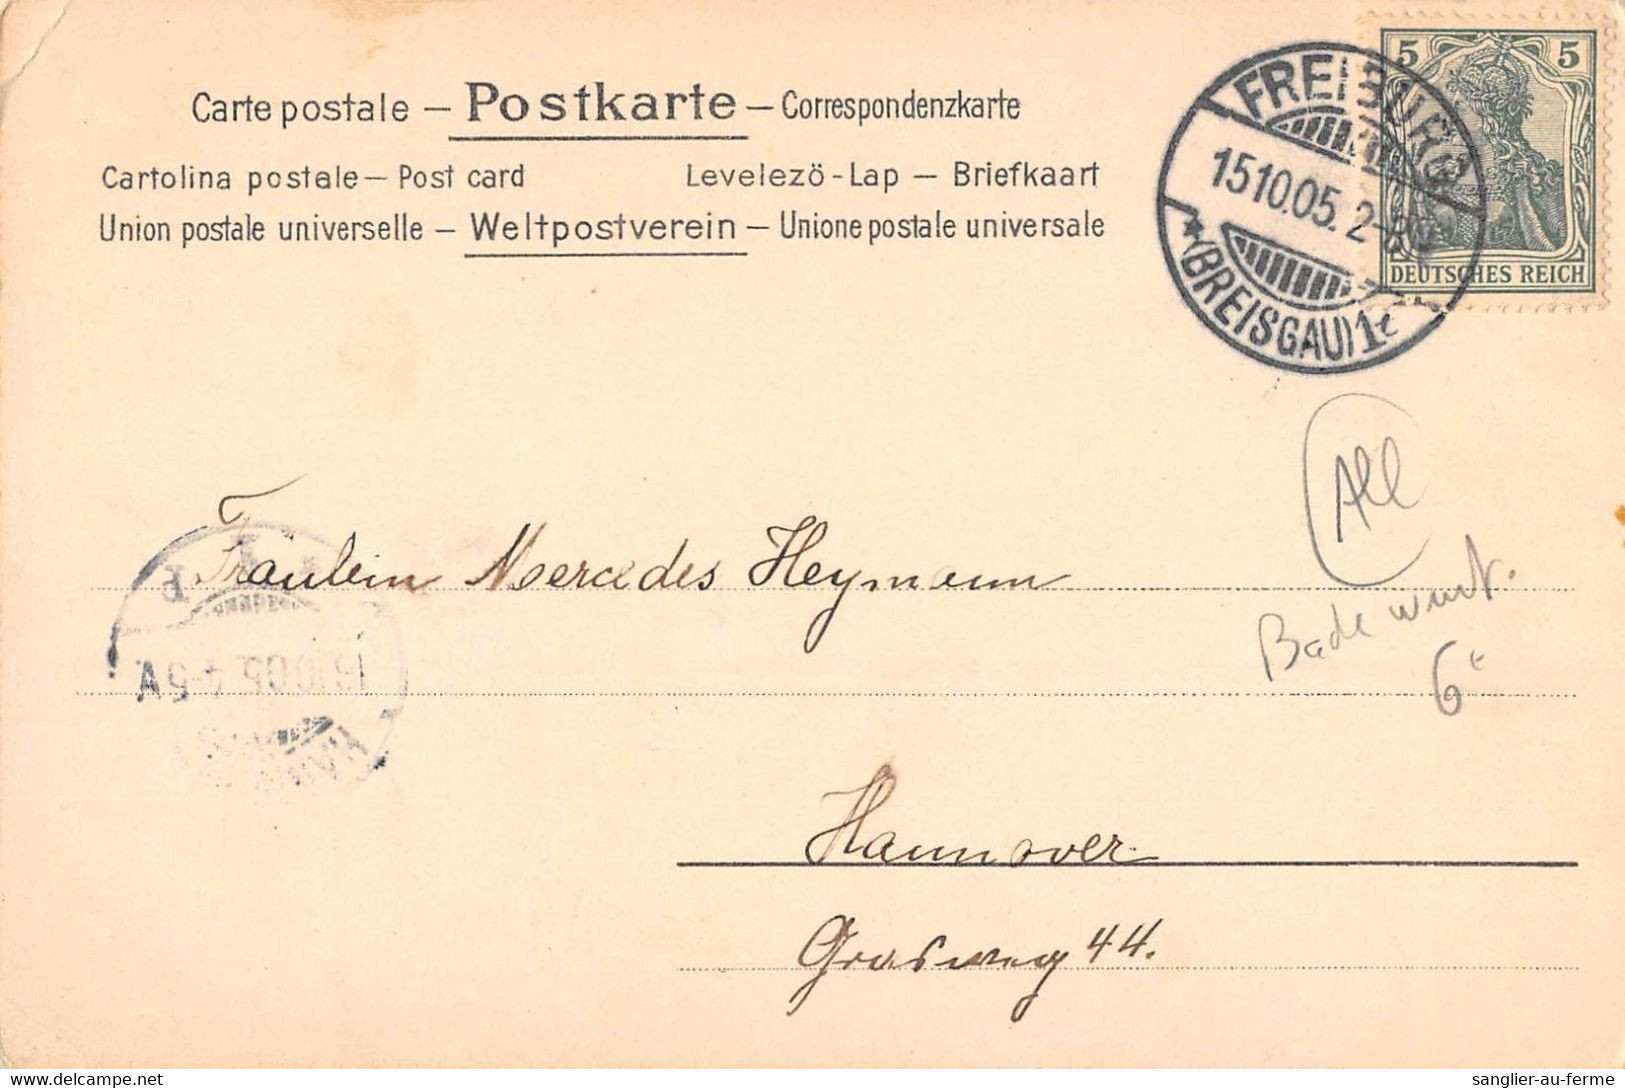 5 5
DEUTSCHES REICH
FREIBURG
15.10.05. 2-
* (BREISGAU) 1c
Carte postale – Postkarte – Correspondenzkarte
Cartolina postale – Post card Levelezö-Lap – Briefkaart
Union postale universelle – Weltpostverein – Unione postale universale
All
Fräulein Mercedes Heymann
Bade wurt.
6€
.10.05. 4-5V.
Hannover
Grasweg 44.
sanglier-au-ferme